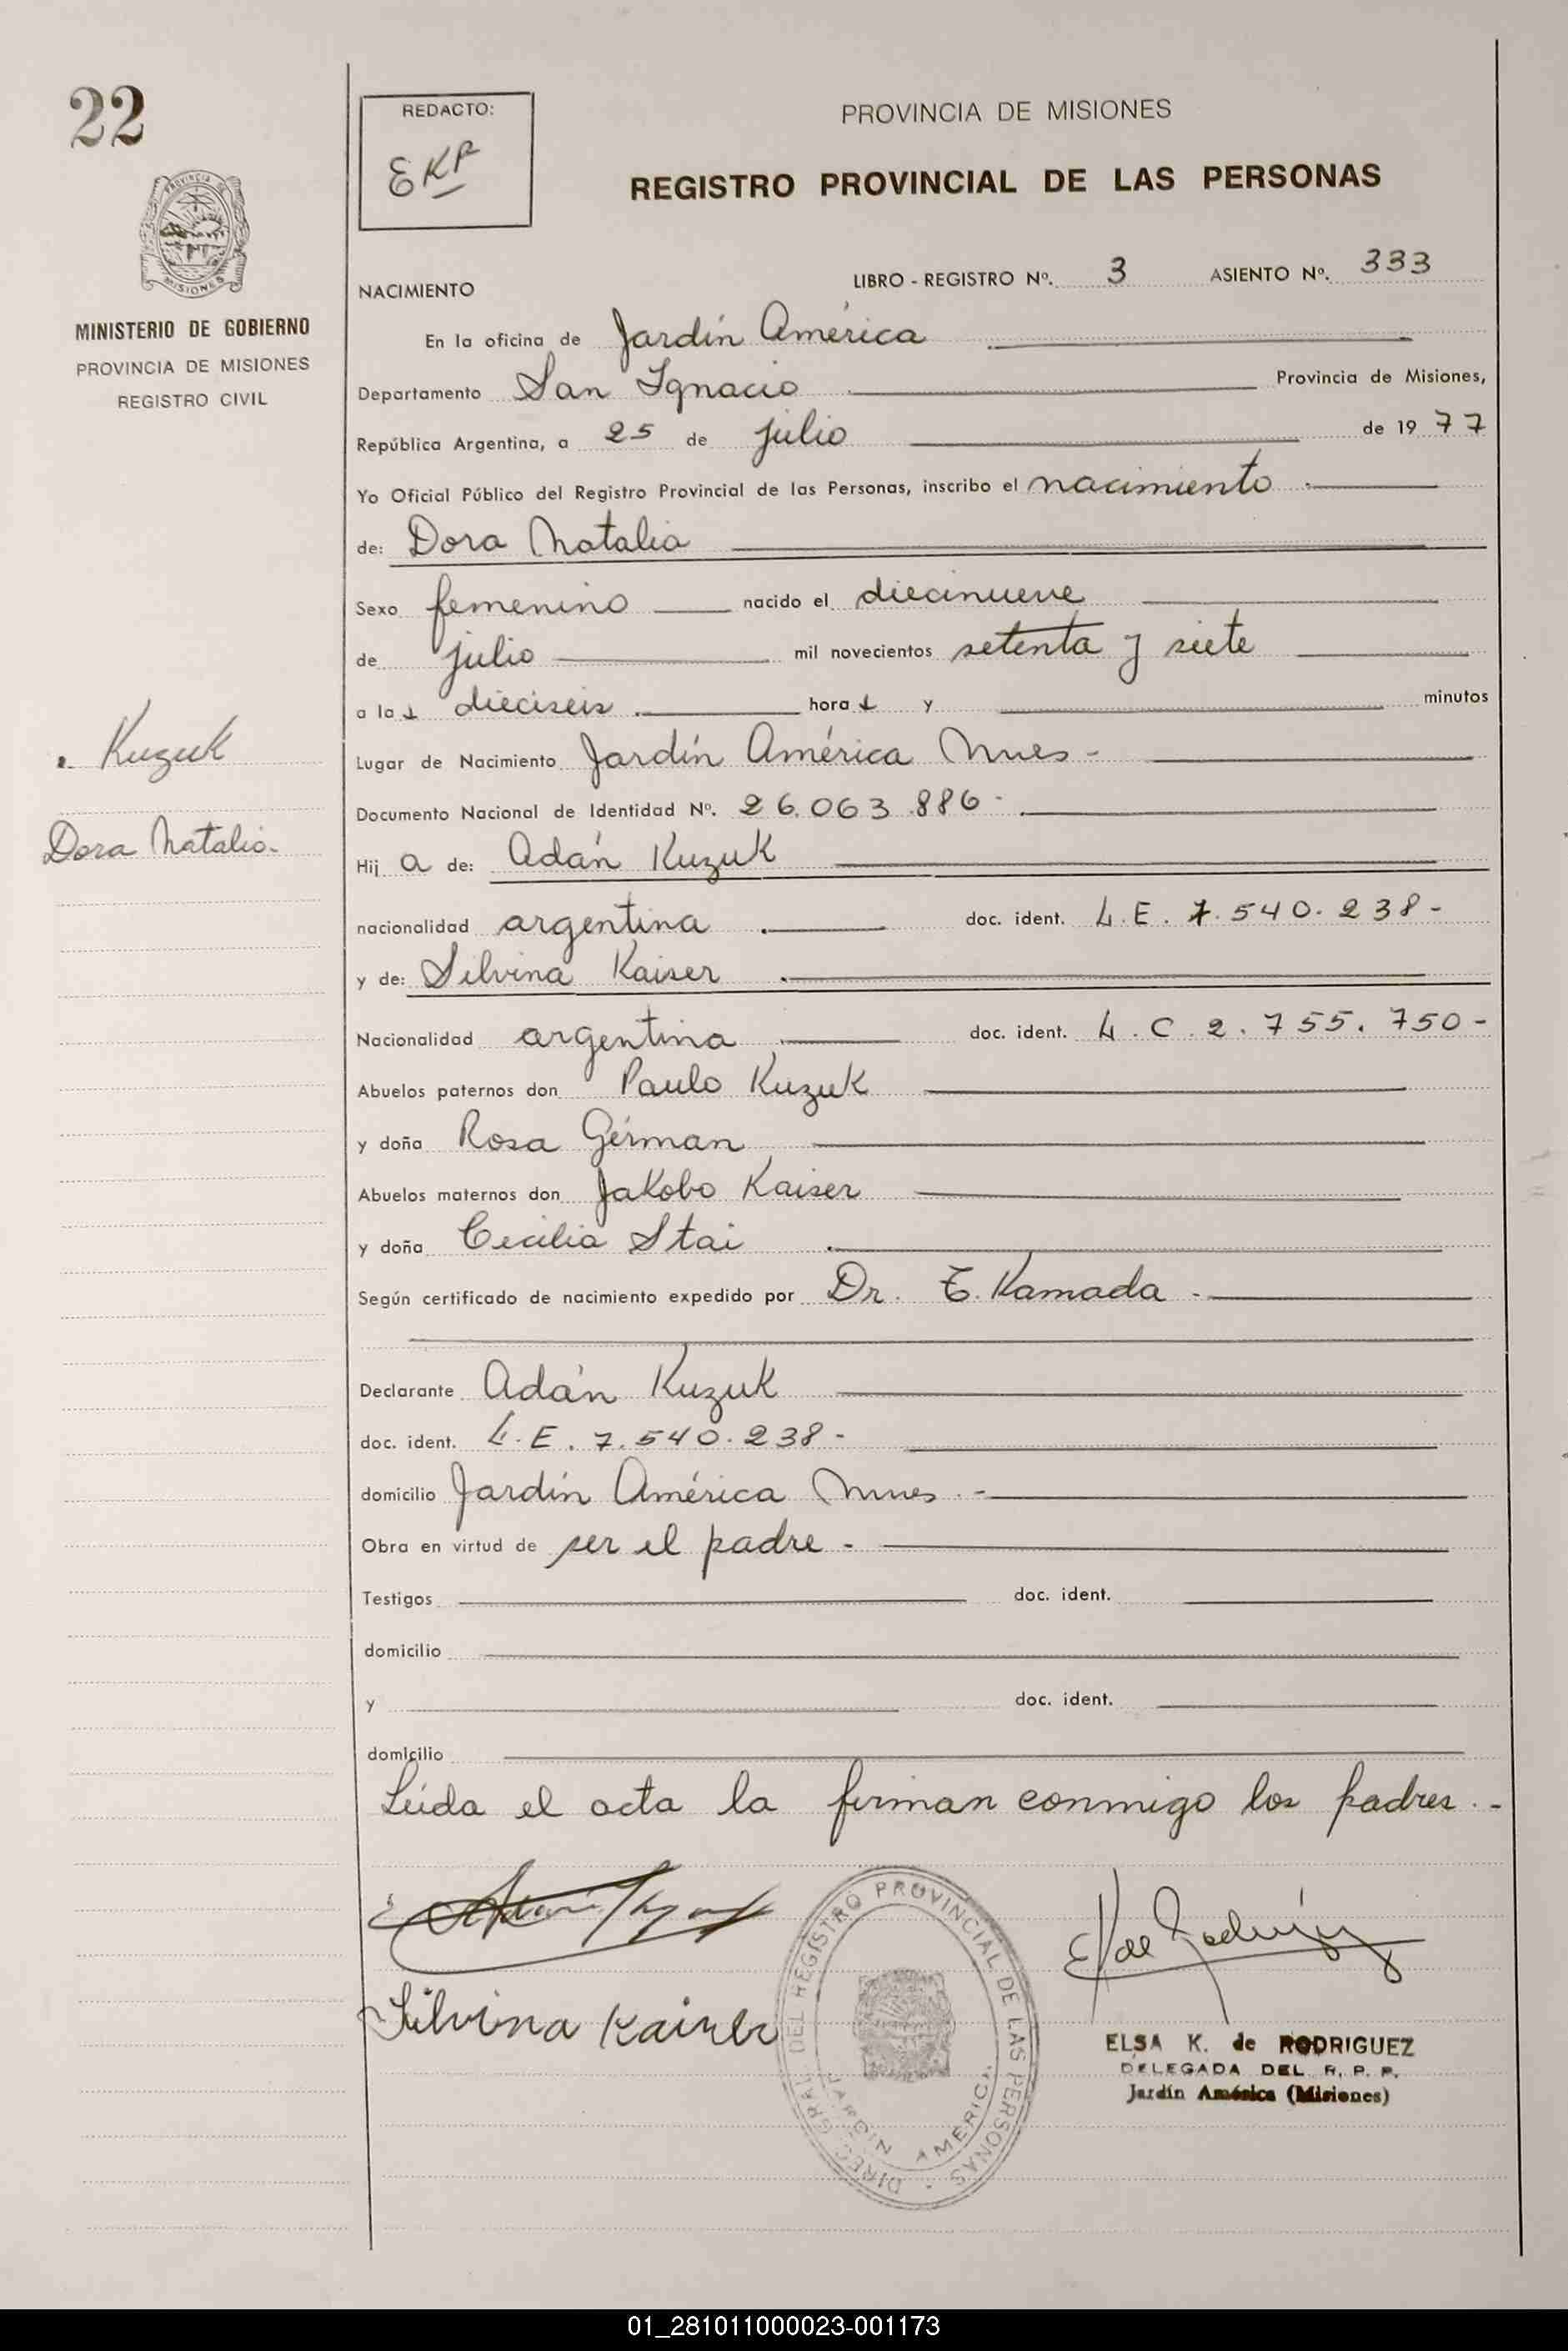 22
REDACTO:
EKR
PROVINCIA DE MISIONES
REGISTRO PROVINCIAL DE LAS PERSONAS
PROVINCIA DE
MISIONES
MINISTERIO DE GOBIERNO
PROVINCIA DE MISIONES
REGISTRO CIVIL
NACIMIENTO LIBRO - REGISTRO Nº. 3 ASIENTO Nº. 333
En la oficina de Jardín América
Departamento San Ignacio Provincia de Misiones,
República Argentina, a 25 de julio de 19 77
Yo Oficial Público del Registro Provincial de las Personas, inscribo el nacimiento
de: Dora Natalia
Sexo femenino nacido el diecinueve
de julio mil novecientos setenta y siete
a las dieciseis horas y minutos
Kuzuk
Dora Natalia.
Lugar de Nacimiento Jardín América Mnes -
Documento Nacional de Identidad Nº. 26.063.886-
Hij a de: Adán Kuzuk
nacionalidad argentina doc. ident. L.E. 7.540.238-
y de: Silvina Kaiser
Nacionalidad argentina doc. ident. L.C 2.755.750-
Abuelos paternos don Paulo Kuzuk
y doña Rosa Gérman
Abuelos maternos don Jakobo Kaiser
y doña Cecilia Stai
Según certificado de nacimiento expedido por Dr. T. Kamada -
Declarante Adán Kuzuk
doc. ident. L.E. 7.540.238-
domicilio Jardín América Mnes. -
Obra en virtud de ser el padre -
Testigos doc. ident.
domicilio
y doc. ident.
domicilio
Leída el acta la firman conmigo los padres. -
Silvina Kaiser
E K de Rodríguez
DIREC. GRAL. DEL REGISTRO PROVINCIAL DE LAS PERSONAS
JARDIN AMERICA
ELSA K. de RODRIGUEZ
DELEGADA DEL R. P. P.
Jardín América (Misiones)
01_281011000023-001173